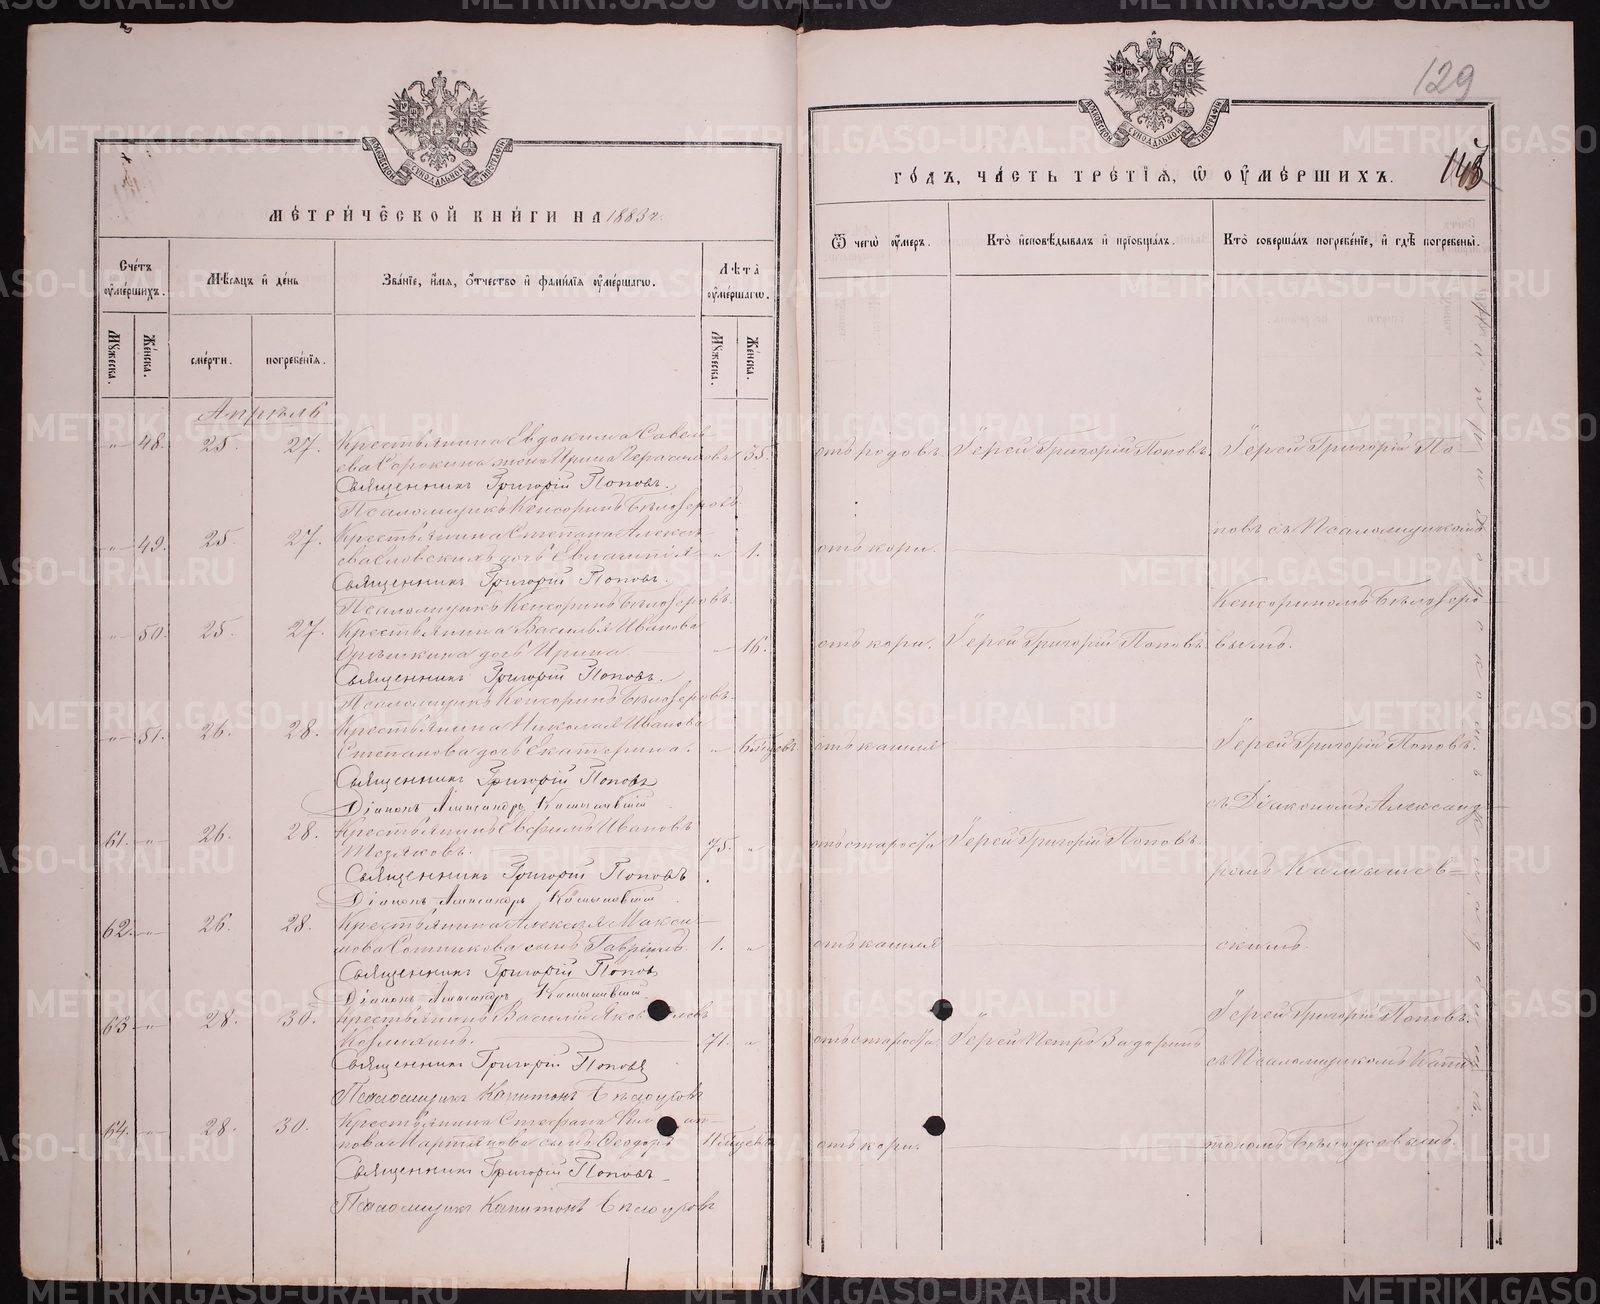 129
МЕТРИЧЕСКОЙ КНИГИ НА 1883 г.
ГОДЪ, ЧАСТЬ ТРЕТІЯ, Ѿ ОУМЕРШИХЪ.
Счетъ оумершихъ.
Мѣсяцъ и день
Званіе, имя, отчество и фамилія оумершагω.
Лѣта оумершагω.
Мужеска.
Женска.
смерти.
погребенія.
Мужеска.
Женска.
Ѿ чегω оумеръ.
Кто исповѣдывалъ и пріобщалъ.
Кто совершалъ погребеніе, и гдѣ погребены.
Апрѣль
„ 48. 25. 27. Крестьянина Евдокима Савель-
ева Сорокина жена Ирина Герасимова 35. отъ родовъ. Іерей Григорій Поповъ. Іерей Григорій По-
Священникъ Григорій Поповъ.
Псаломщикъ Кенсоринъ Бѣлозеровъ
„ 49. 25. 27. Крестьянина Степана Алексѣ- повъ съ Псаломщикомъ
ева дочь Евлампія „ 1. отъ кори.
Священникъ Григорій Поповъ.
Псаломщикъ Кенсоринъ Бѣлозеровъ. Кенсориномъ Бѣлозеро-
„ 50. 25. 27. Крестьянина Василья Иванова
дочь Ирина „ 16. отъ кори. Іерей Григорій Поповъ. вымъ.
Священникъ Григорій Поповъ.
Псаломщикъ Кенсоринъ Бѣлозеровъ.
„ 51. 26. 28. Крестьянина Николая Иванова
Степанова дочь Екатерина. „ отъ кашля Іерей Григорій Поповъ.
Священникъ Григорій Поповъ
Діаконъ Александръ Камышевскій съ Діакономъ Александ-
61. „ 26. 28. Крестьянинъ Евфимъ Ивановъ
75. „ отъ старости Іерей Григорій Поповъ.
Священникъ Григорій Поповъ ромъ Камышев-
Діаконъ Александръ Камышевскій
62. „ 26. 28. Крестьянина Алексѣя Макси-
мова Сотникова сынъ Гавріилъ. 1. „ отъ кашля скимъ.
Священникъ Григорій Поповъ
Діаконъ Александръ Камышевскій
63. „ 28. 30. Крестьянинъ Василій Яковлевъ Іерей Григорій Поповъ.
71. „ отъ старости Іерей Петръ Задоринъ съ Псаломщикомъ Капи-
Священникъ Григорій Поповъ
Псаломщикъ Капитонъ Бѣлоусовъ
64. „ 28. 30. Крестьянина Стефана
Мартьянова сынъ Ѳеодоръ отъ кори. тономъ Бѣлоусовымъ.
Священникъ Григорій Поповъ
Псаломщикъ Капитонъ Бѣлоусовъ
METRIKI.GASO-URAL.RU